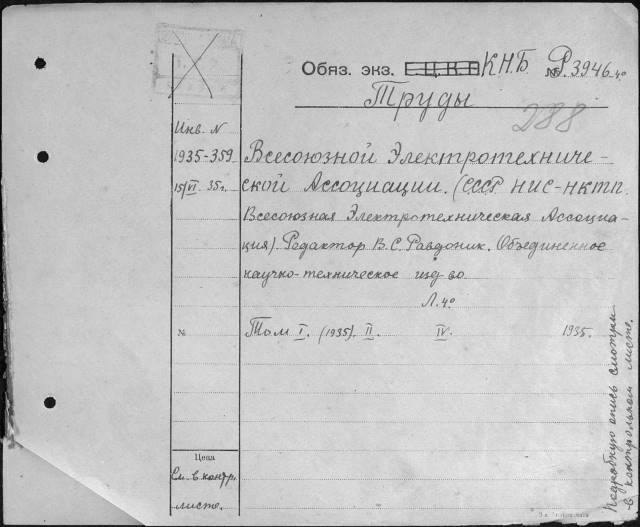 Обяз. экз. Г.Ц.К.П. К.Н.Б № P3946 4º
Труды
288
Инв. N
1935-359
15/VI 35г.
Всесоюзной Электротехниче-
ской Ассоциации. (СССР НИС-НКТП.
Всесоюзная Электротехническая Ассоциа-
ция). Редактор В.С. Равдоник. Объединенное
научно-техническое изд-во
Л. 4º
№ Том I. (1935). II. IV. 1935.
Цена
См. в контр.
листе.
Подробную опись смотри
в контрольном листе.